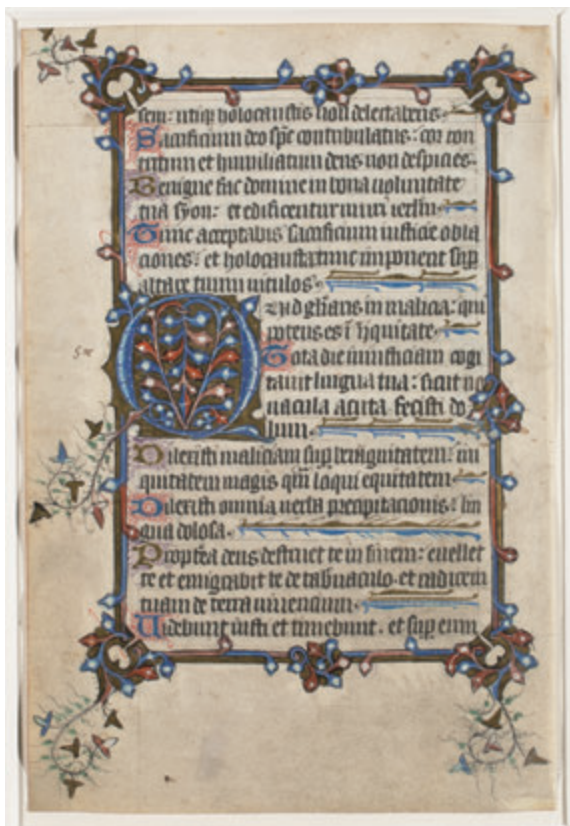 sem: utiq holocaustis non delectaberis.
Sacrificium deo spc contribulatus: cor con
tritum et humiliatum deus non despicies.
Benigne fac domine in bona uoluntate
tua syon: et edificentur muri ierlm.
Tunc acceptabis sacrificium iusticie obla
ciones: et holocausta tunc imponent sup
altare tuum uitulos.
Quid gliaris in malicia: qui
potens es i iiquitate.
Tota die iniusticiam cogi
tauit lingua tua: sicut no
uacula acuta fecisti do
lum.
Dilexisti maliciam sup benignitatem: ini
quitatem magis qm loqui equitatem.
Dilexisti omnia uerba precipitacionis: lin
gua dolosa.
Proptea deus destruet te in finem: euellet
te et emigrabit te de tabnaculo. et radicem
tuam de terra uiuencium.
Uidebunt iusti et timebunt. et sup eum